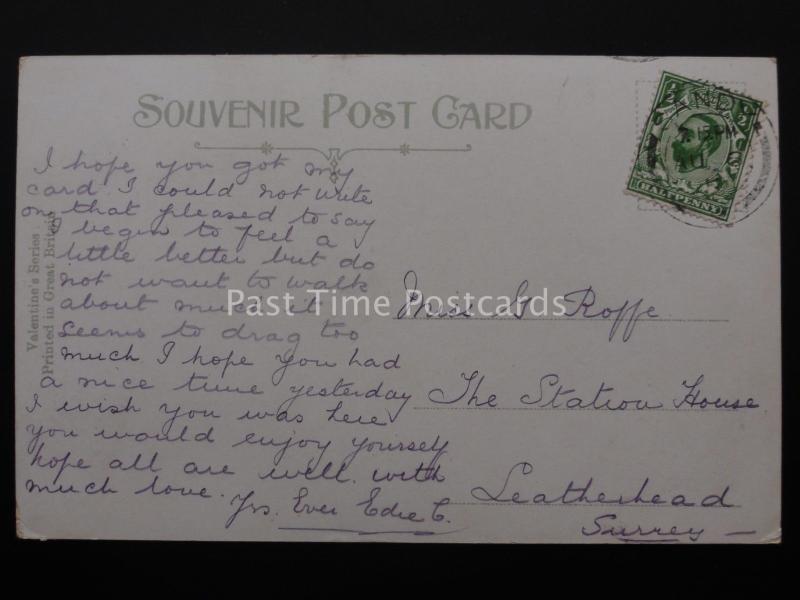 SOUVENIR POST CARD
I hope you got my
card I could not write
on that pleased to say
I begin to feel a
little better but do
not want to walk
about much it
seems to drag too
much I hope you had
a nice time yesterday
I wish you was here
you would enjoy yourself
hope all are well. with
much love.
Yrs. Ever Edie C.
Valentine's Series
Printed in Great Britain
Miss G Roffe
The Station House
Leatherhead
Surrey
½ ½
HALFPENNY
Past Time Postcards